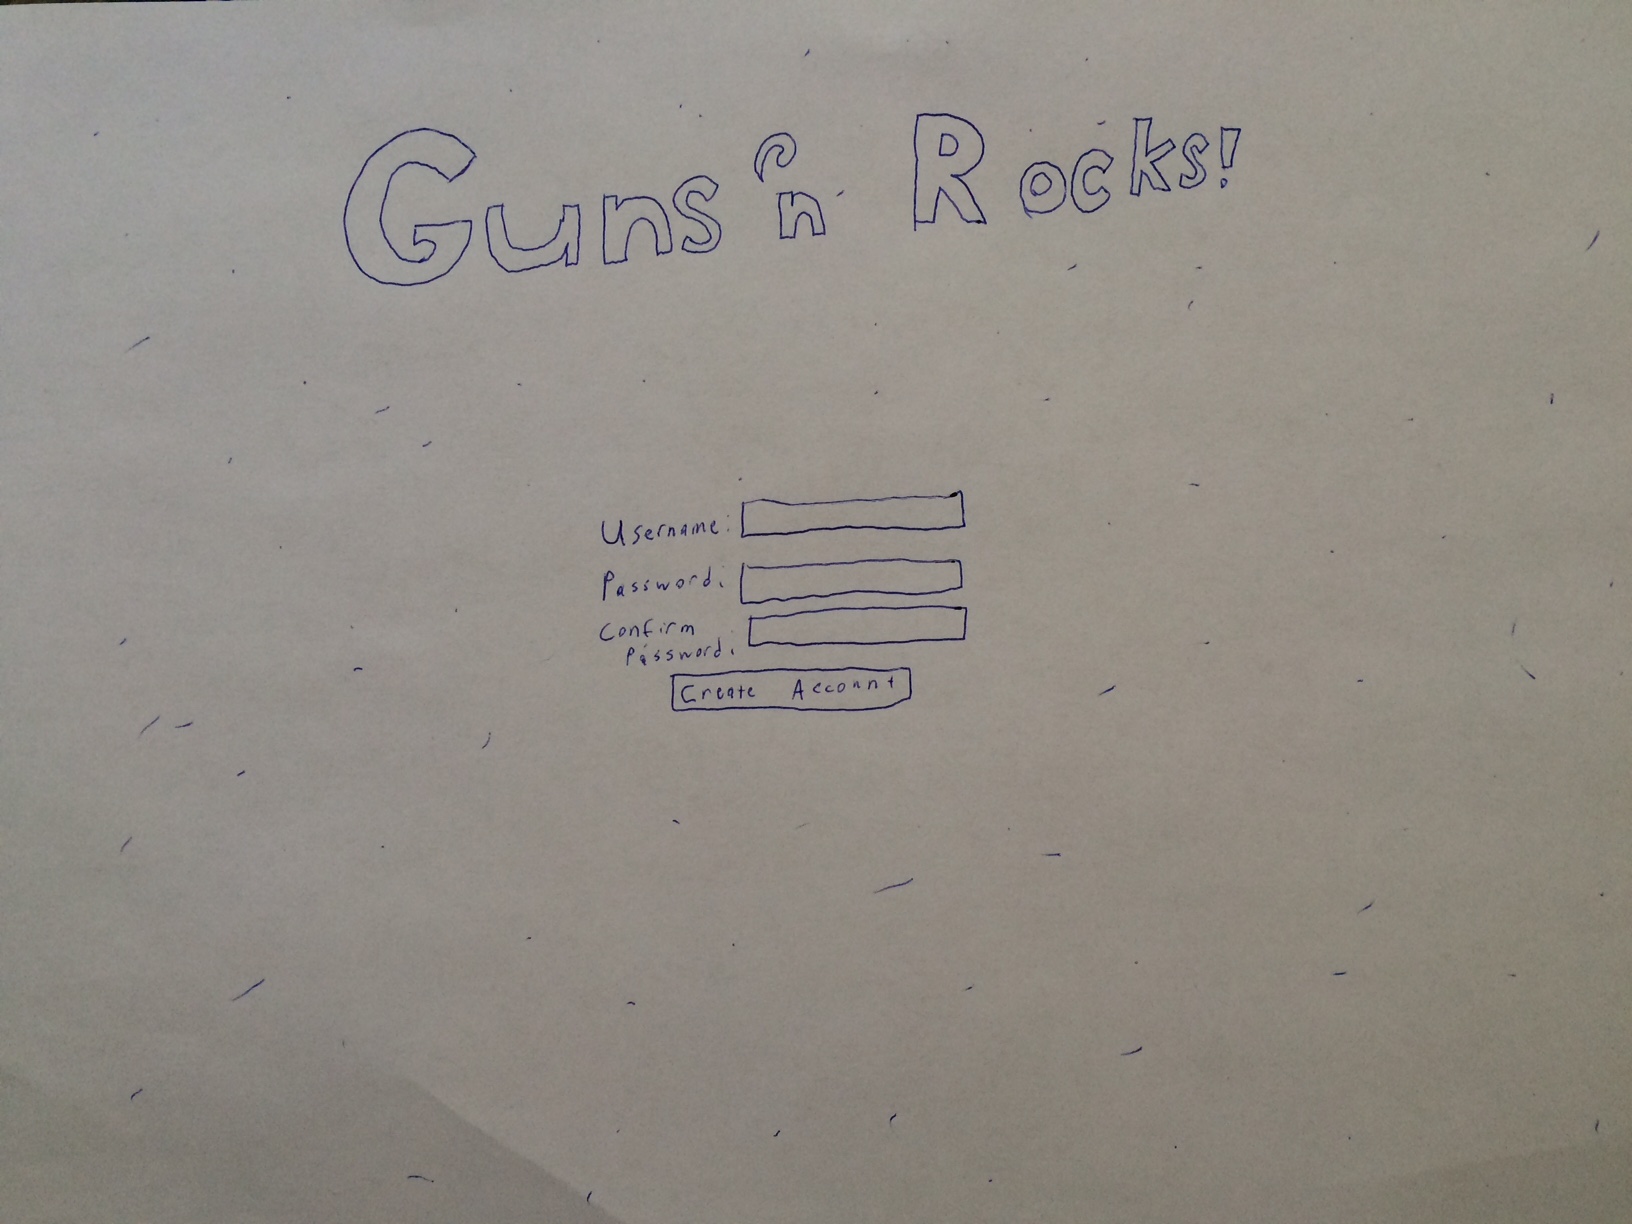 Guns 'n Rocks!
Username:
Password:
Confirm
Password:
Create Account